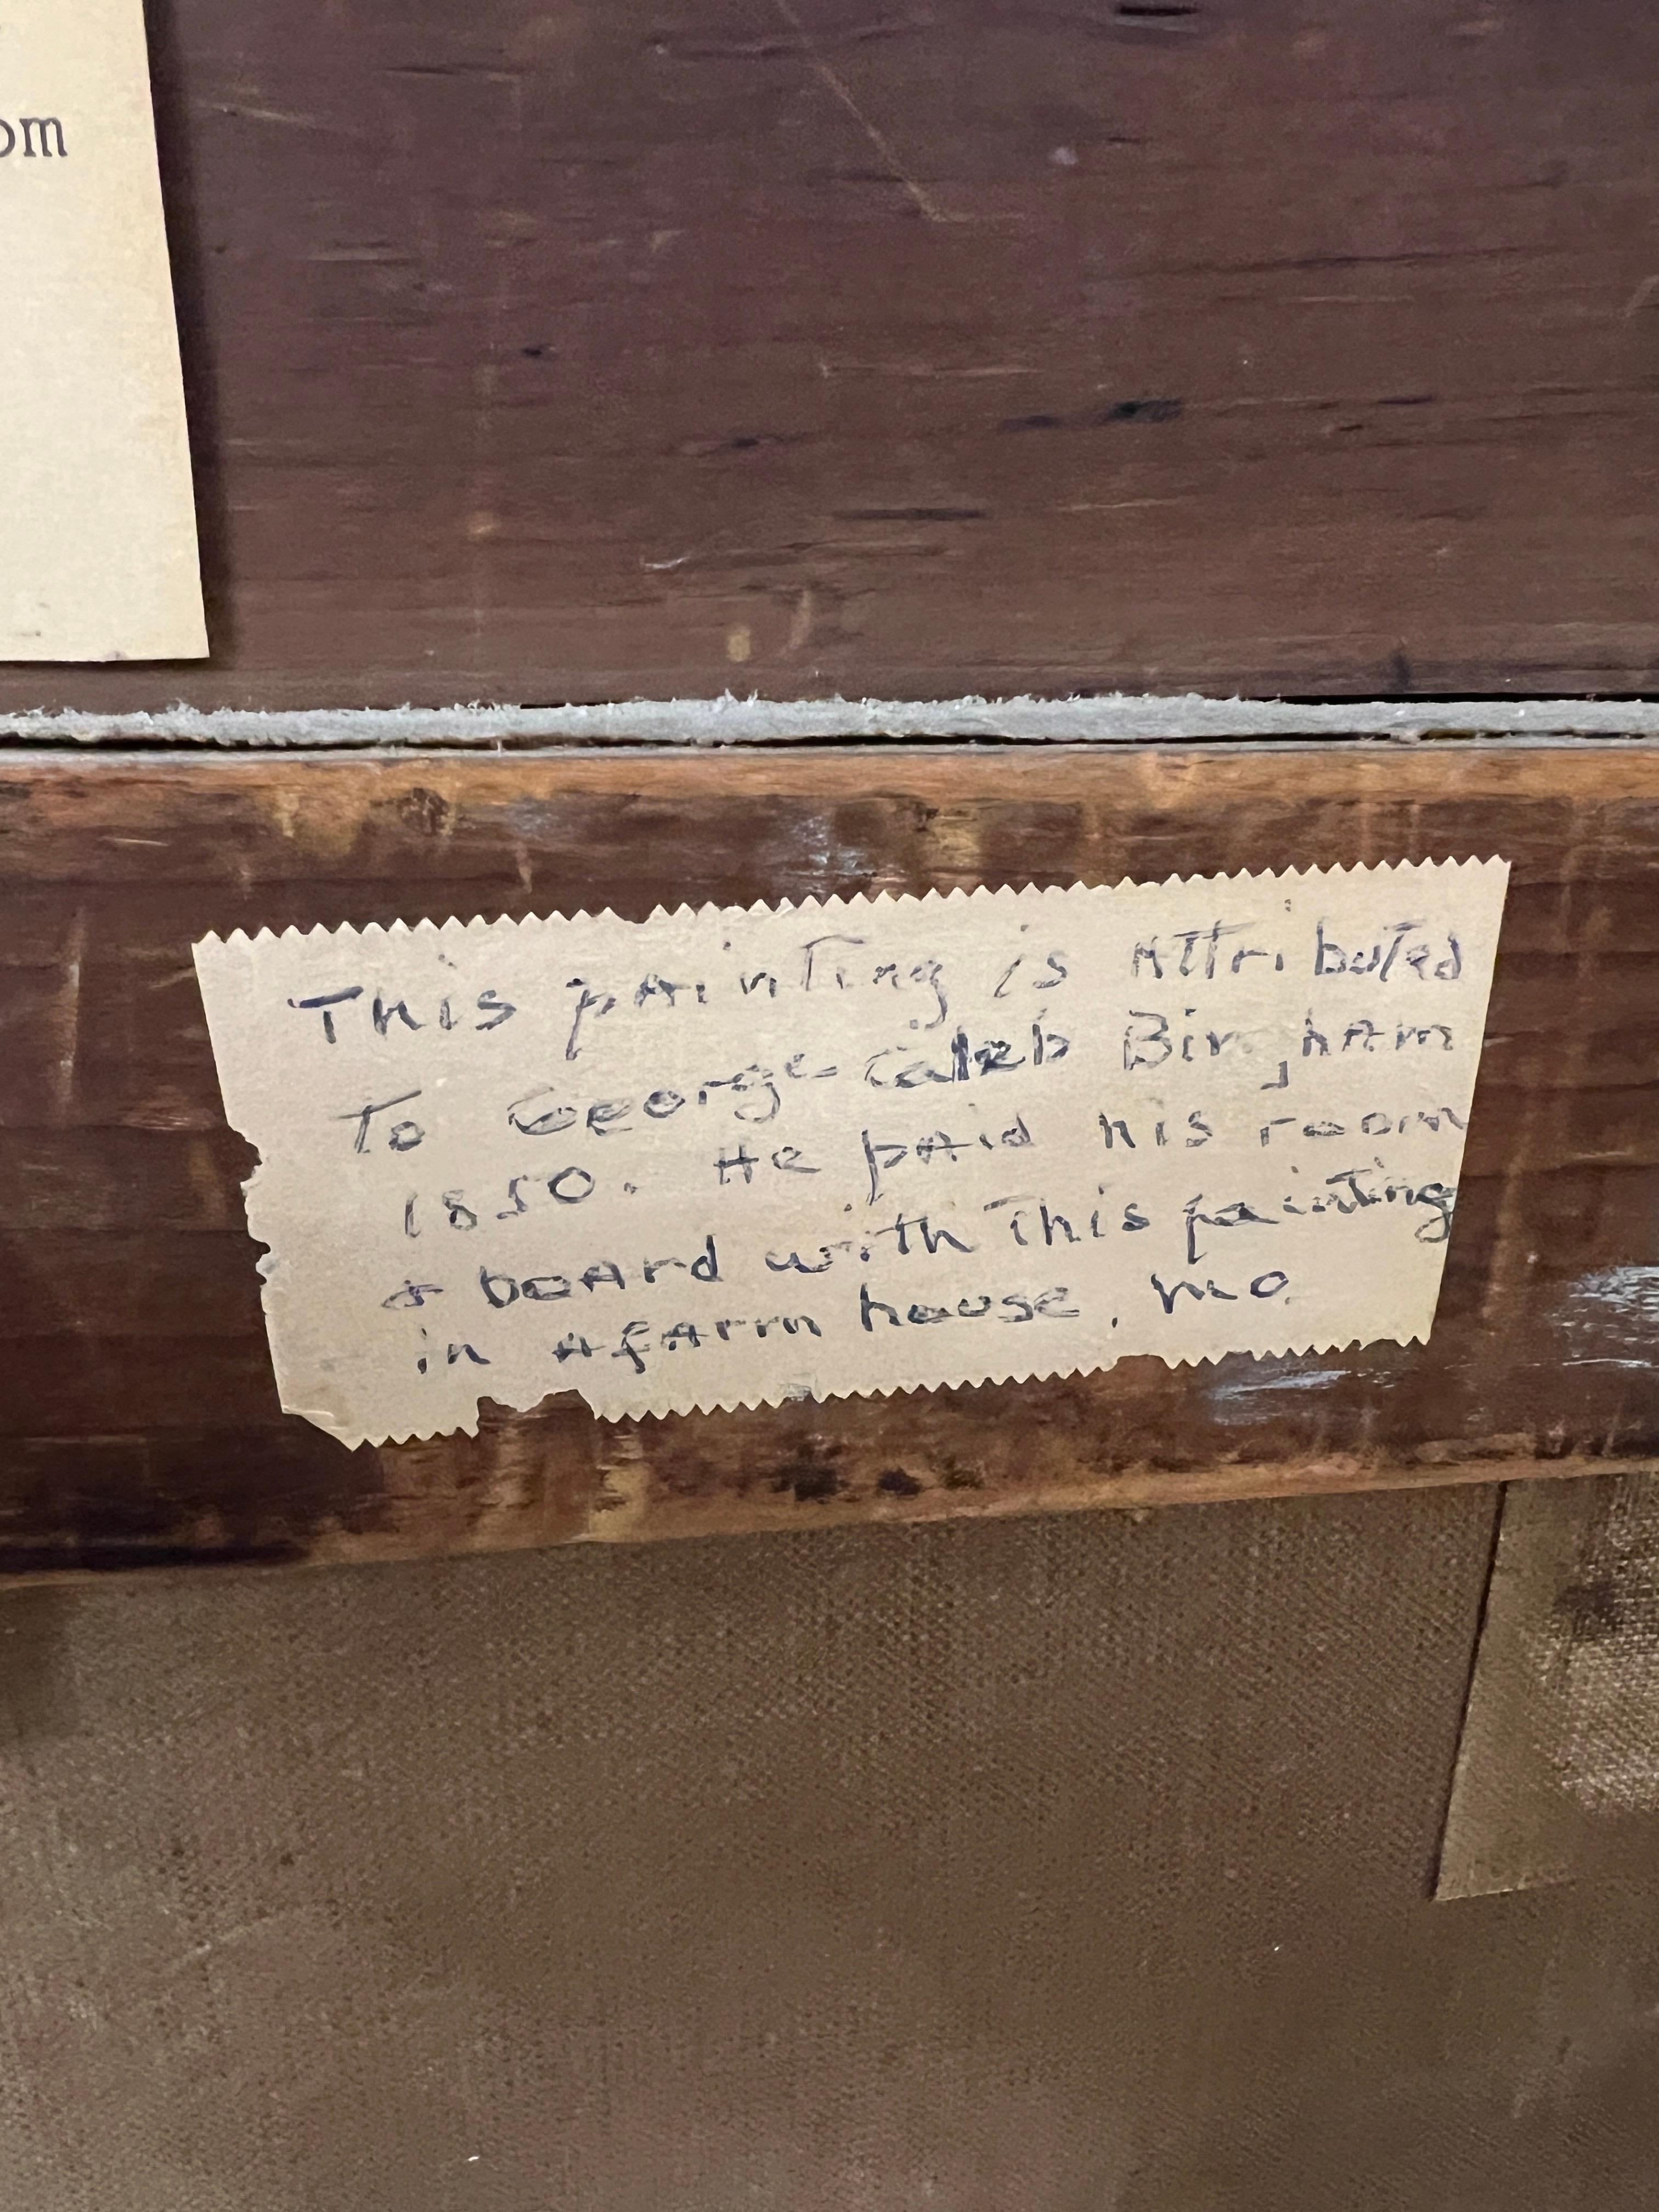 om
This painting is Attributed
To George Caleb Bingham
1850. He paid his room
& board with This painting
in A farm house, Mo.